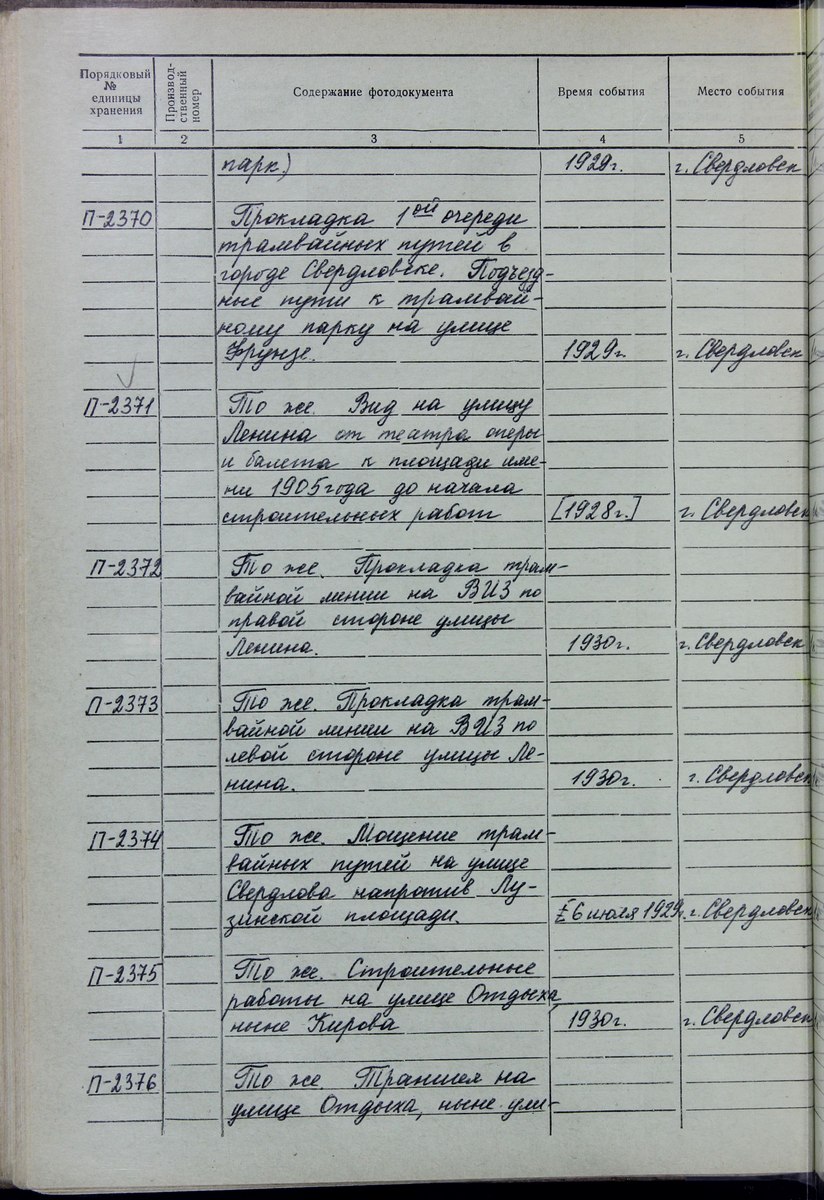 Порядковый
№
единицы
хранения
Производ-
ственный
номер
Содержание фотодокумента
Время события
Место события
1 2 3 4 5
парк.) 1929г. г. Свердловск
П-2370 Прокладка 1ой очереди
трамвайных путей в
городе Свердловске. Подъезд-
ные пути к трамвай-
ному парку на улице
Фрунзе. 1929г. г. Свердловск
П-2371 То же. Вид на улицу
Ленина от театра оперы
и балета к площади име-
ни 1905 года до начала
строительных работ [1928г.] г. Свердловск
П-2372 То же. Прокладка трам-
вайной линии на ВИЗ по
правой стороне улицы
Ленина. 1930г. г. Свердловск
П-2373 То же. Прокладка трам-
вайной линии на ВИЗ по
левой стороне улицы Ле-
нина. 1930г. г. Свердловск
П-2374 То же. Мощение трам-
вайных путей на улице
Свердлова напротив Лу-
зинской площади. 6 июля 1929г. г. Свердловск
П-2375 То же. Строительные
работы на улице Отдыха,
ныне Кирова 1930г. г. Свердловск
П-2376 То же. Траншея на
улице Отдыха, ныне ули-